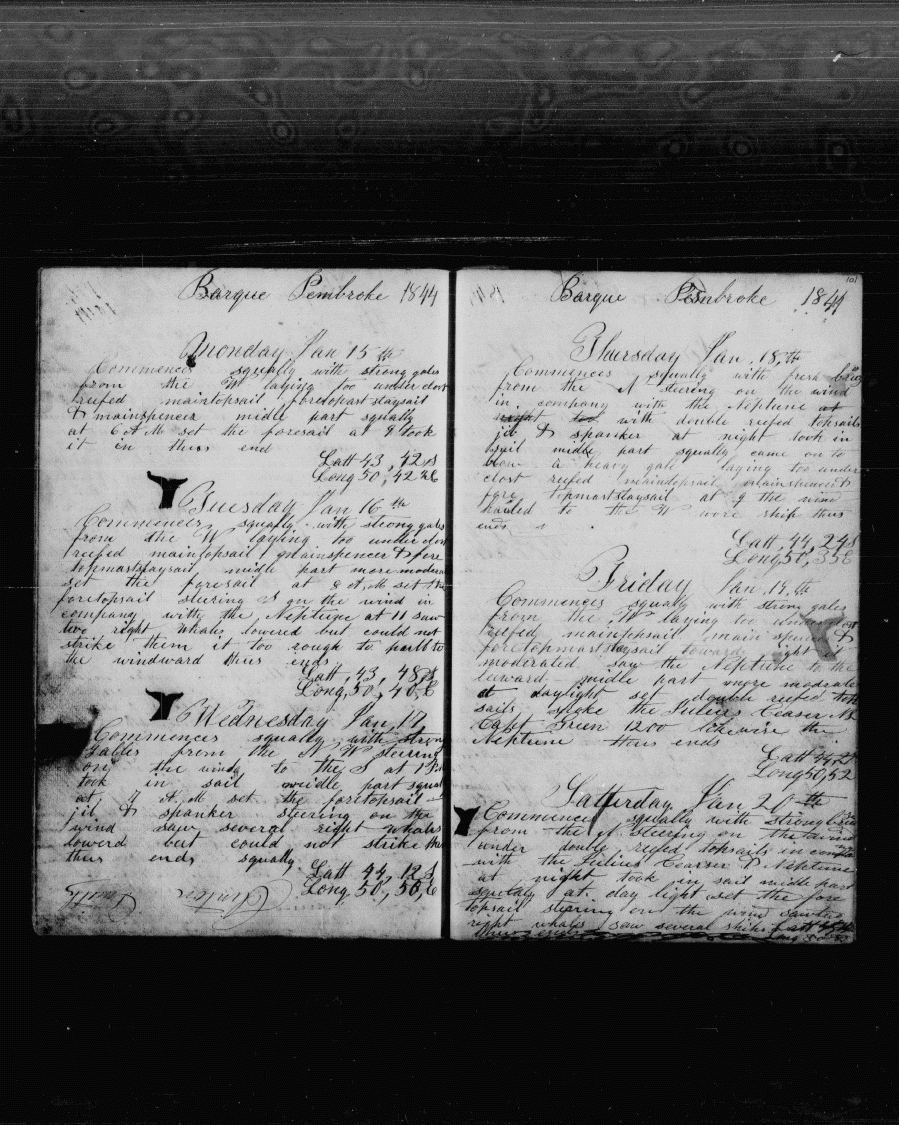 Barque Pembroke 1844
Monday Jan 15th
Commences squally with strong gales
from the W laying too under clost
reefed maintopsail foretopmast staysail
& mainspencer midle part squally
at 6 A M set the foresail at 9 took
it in thus end
Latt 43, 42 S
Long 50, 42 E
Tuesday Jan 16th
Commences squally with strong gales
from the W laying too under clost
reefed maintopsail mainspencer & fore
topmaststaysail midle part more modera
set the foresail at 8 A M set the
foretopsail steering S on the wind in
company with the Neptune at 11 saw
two right whales lowered but could not
strike them it too rough to pull to
the windward thus ends
Latt 43, 48 S
Long 50, 40, E
Wednesday Jan 17
Commences squally with strong
from the S W steering
on the wind to the S at 1
took in sail midle part squal
at 4 A M set the foretopsail
jib & spanker steering on the
wind saw several right whales
lowerd but could not strike the
thus ends squally
Latt 44, 12 S
Long 50, 50, E
101
Barque Pembroke 1844
Thursday Jan 18th
Commences squally with fresh
from the N steering on the wind
in company with the Neptune at
night too with double reefed topsails
jib & spanker at night took in
sail midle part squally came on to
blow a heavy gale laying too under
clost reefed maintopsail mainspencer &
fore topmaststaysail at 9 the wind
hauled to the W wore ship thus
ends
Latt 44, 24 S
Long 50, 35 E
Friday Jan 19th
Commences squally with strong gales
from the W laying too under clost
reefed maintopsail main spencer &
foretopmast staysail towards night it
moderated saw the Neptune to the
leward midle part more moderate
at daylight set double reefed top
sails spoke the Julius Ceaser N L
Capt Green 1200 likewise the
Neptune thus ends
Latt 44, 21
Long 50, 52
Satturday Jan 20th
Commences squally with strong
from the N steering on the wind
under double reefed topsails in
with the Julius Ceaser & Neptune
at night took in sail midle part
squaly at day light set the fore
topsail steering on the wind saw
right whales saw several ships